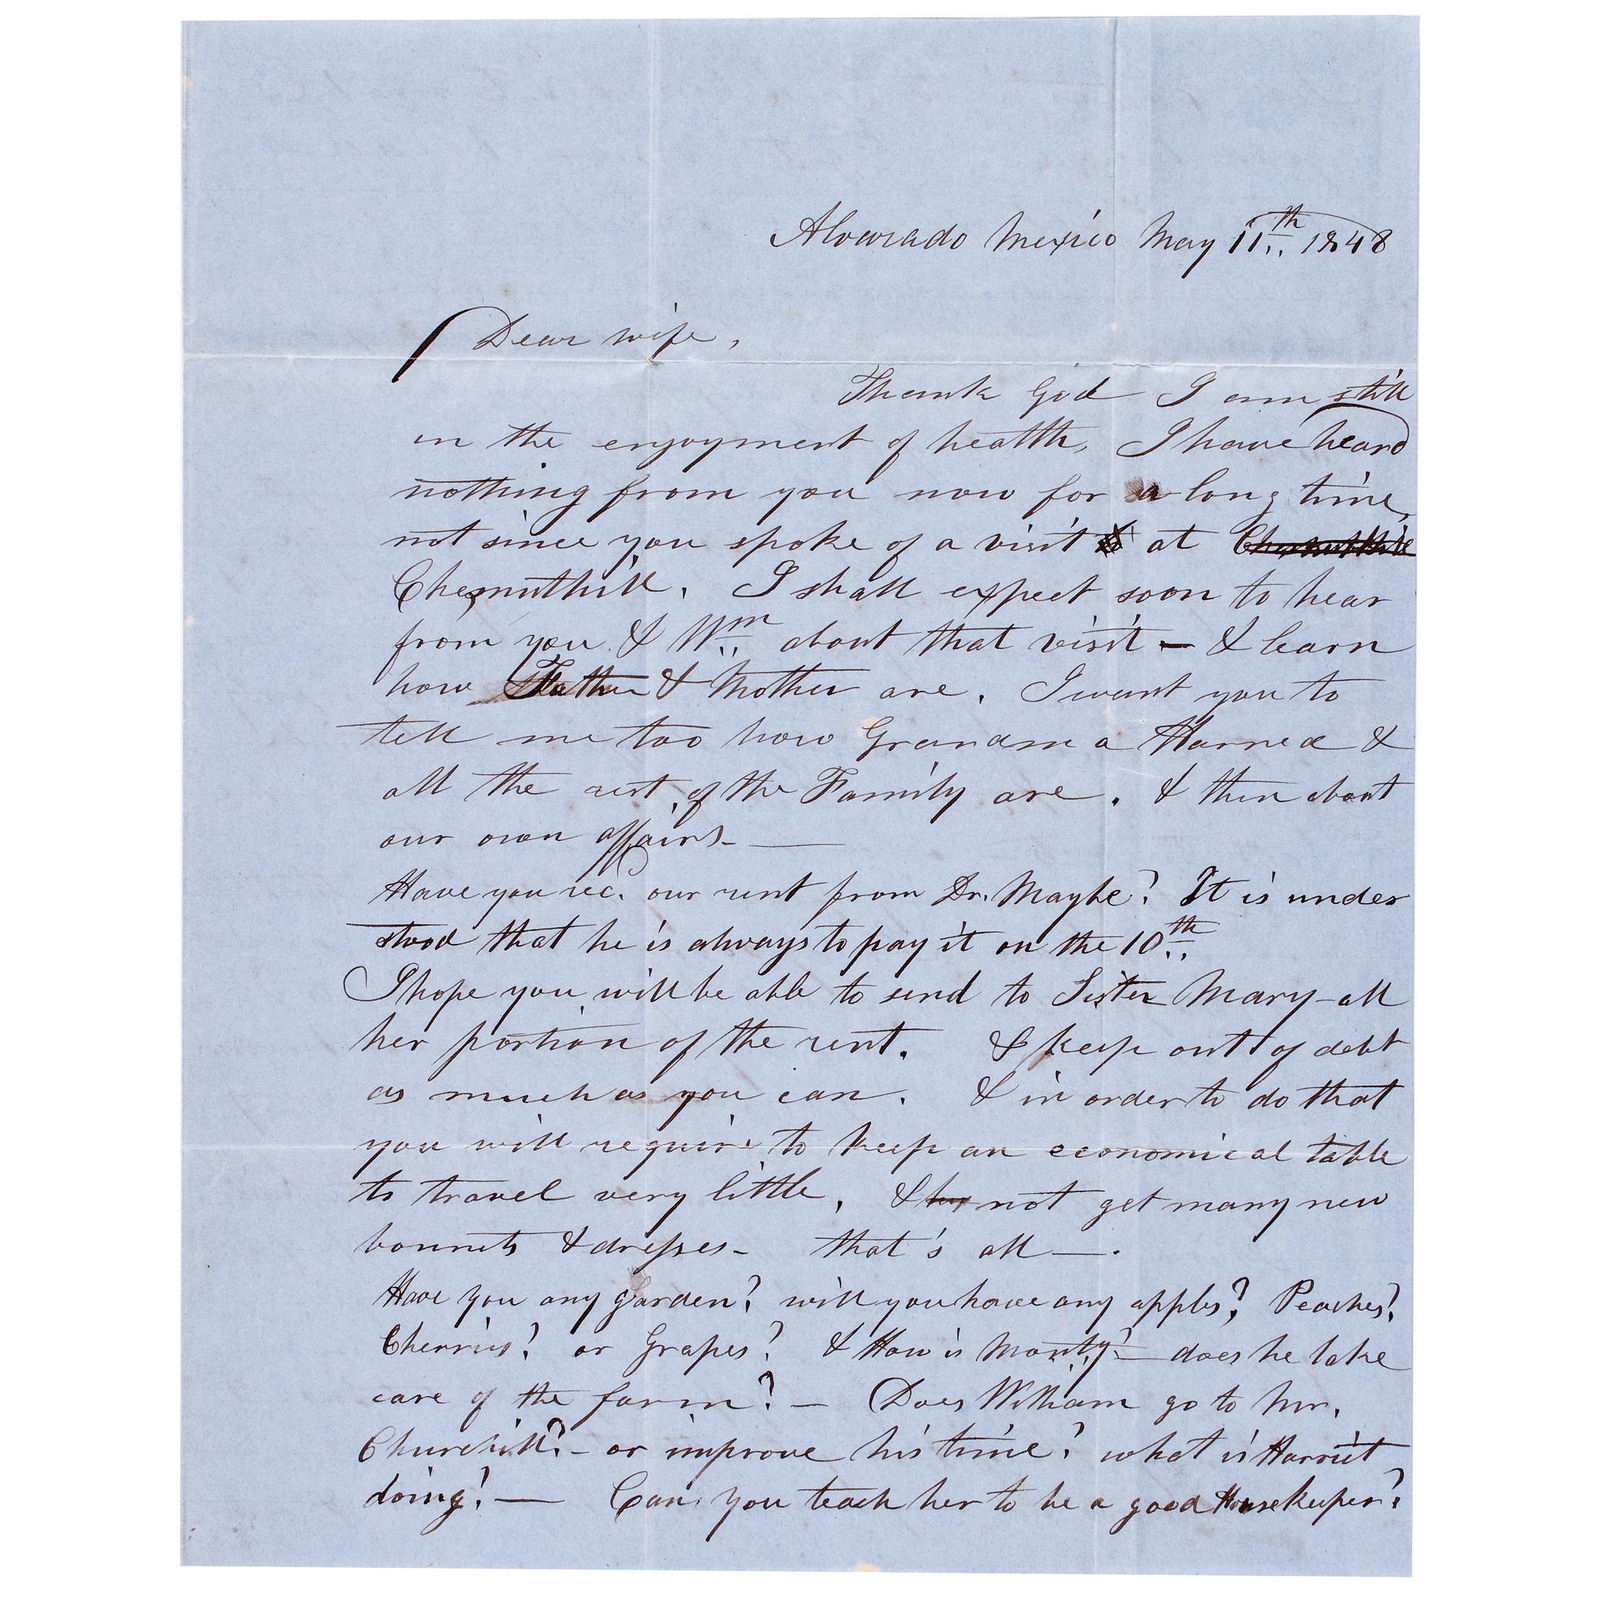 Alvarado Mexico May 11th 1848
Dear wife,
Thank God I am still
in the enjoyment of health, I have heard
nothing from you now for a long time,
not since you spoke of a visit at
Chesnuthill. I shall expect soon to hear
from you & Wm about that visit - & learn
how Father & Mother are. I want you to
tell me too how Grandma Harned &
all the rest of the Family are. & then about
our own affairs-
Have you rec. our rent from Dr. Maybe? It is under
stood that he is always to pay it on the 10th
I hope you will be able to send to Sister Mary all
her portion of the rent. & keep out of debt
as much as you can. & in order to do that
you will require to keep an economical table
to travel very little, & not get many new
bonnets & dresses- that's all —.
Have you any garden? will you have any apples? Peaches?
Cherries? or Grapes? & How is Monty? - does he take
care of the farm? - Does William go to Mr.
Churchill? - or improve his time? what is Harriet
doing? — Can you teach her to be a good Housekeeper?